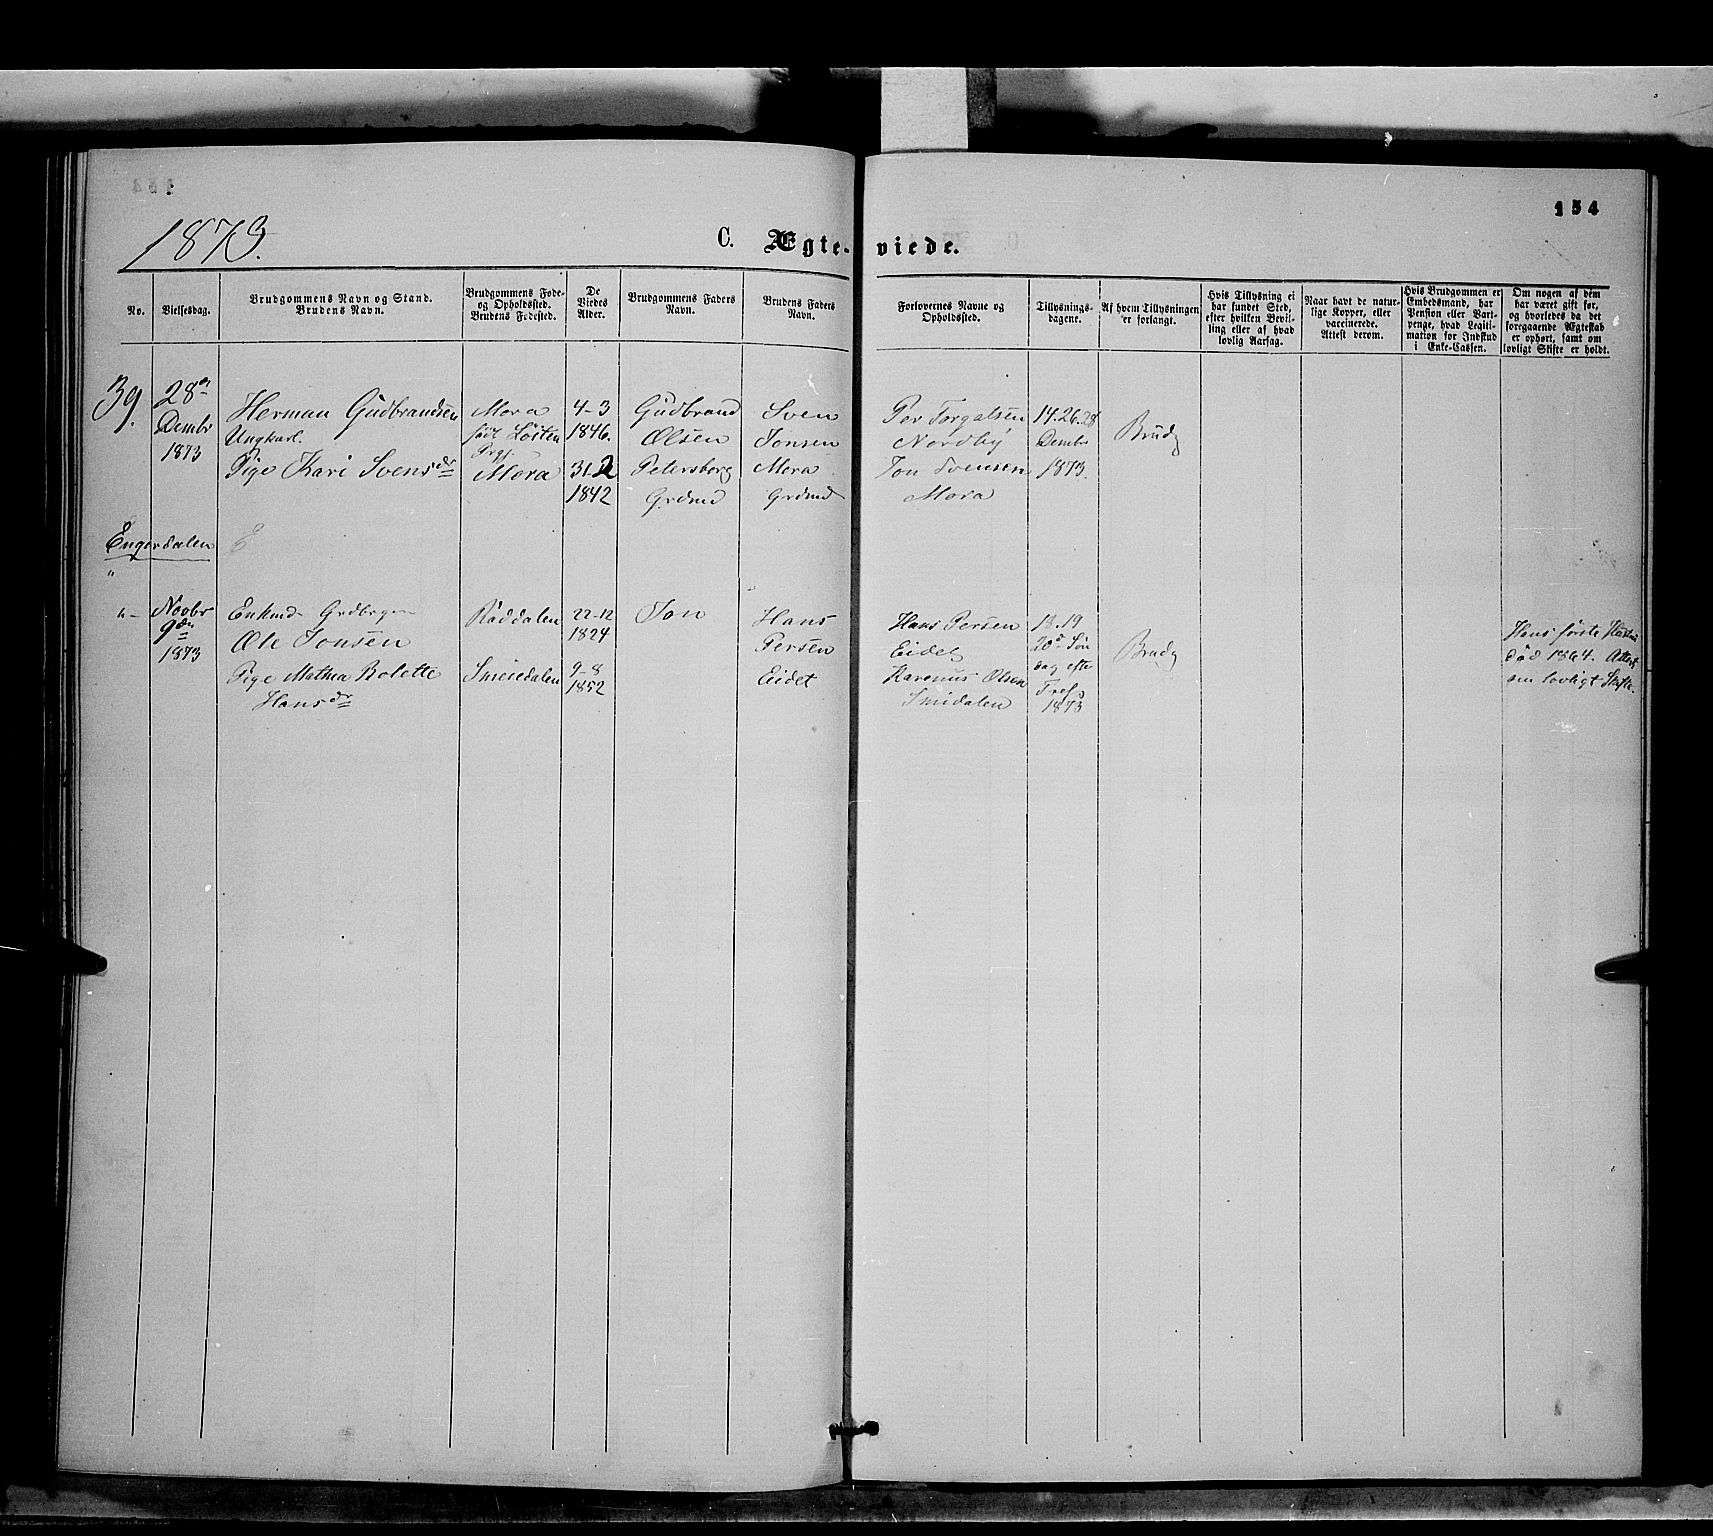 154
1873.
C. Ægte-viede.
No.
Vielsesdag.
Brudgommens Navn og Stand.
Brudens Navn.
Brudgommens Føde-
og Opholdssted.
Brudens Fødested.
De
Viedes
Alder.
Brudgommens Faders
Navn.
Brudens Faders
Navn.
Forlovernes Navne og
Opholdssted.
Tillysnings-
dagene.
Af hvem Tillysningen
er forlangt.
Hvis Tillysning ei
har fundet Sted,
efter hvilken Bevil-
ling eller af hvad
lovlig Aarsag.
Naar havt de natur-
lige Kopper, eller
vaccinerede.
Attest derom.
Hvis Brudgommen er
Embedsmand, har
Pension eller Vart-
penge, hvad Legiti-
mation for Indskud
i Enke-Cassen.
Om nogen af dem
har været gift før,
og hvorledes da det
foregaaende Ægteskab
er ophørt, samt om
lovligt Skifte er holdt.
39.
28de
Dembr
1873
Herman Gudbrandsen
Ungkarl.
Pige Kari Svensdr
Mora
født Løiten
Prgj.
Mora
4-3
1846.
31-2
1842
Gudbrand
Olsen
Petersborg
Grdmd
Sven
Jonsen
Mora
Grdmd
Per Torgalsen
Nordby
Jon Svensen
Mora
14.26.28
Dembr
1873.
Brudg
Engerdalen
"
"-
Novbr
9de
1873
Enkmd Grdbrgr
Ole Jonsen
Pige Mathea Bolette
Hansdr
Røddalen
Smeiedalen
22-12
1824
9-8
1852
Jon
Hans
Persen
Eidet
Hans Persen
Eidet
Karenus Olsen
Smidalen
18.19
20de Søn
dag efter
Tref.
1873
Brudg
Hans første Hustru
død 1864. Attest
om lovligt Skifte.